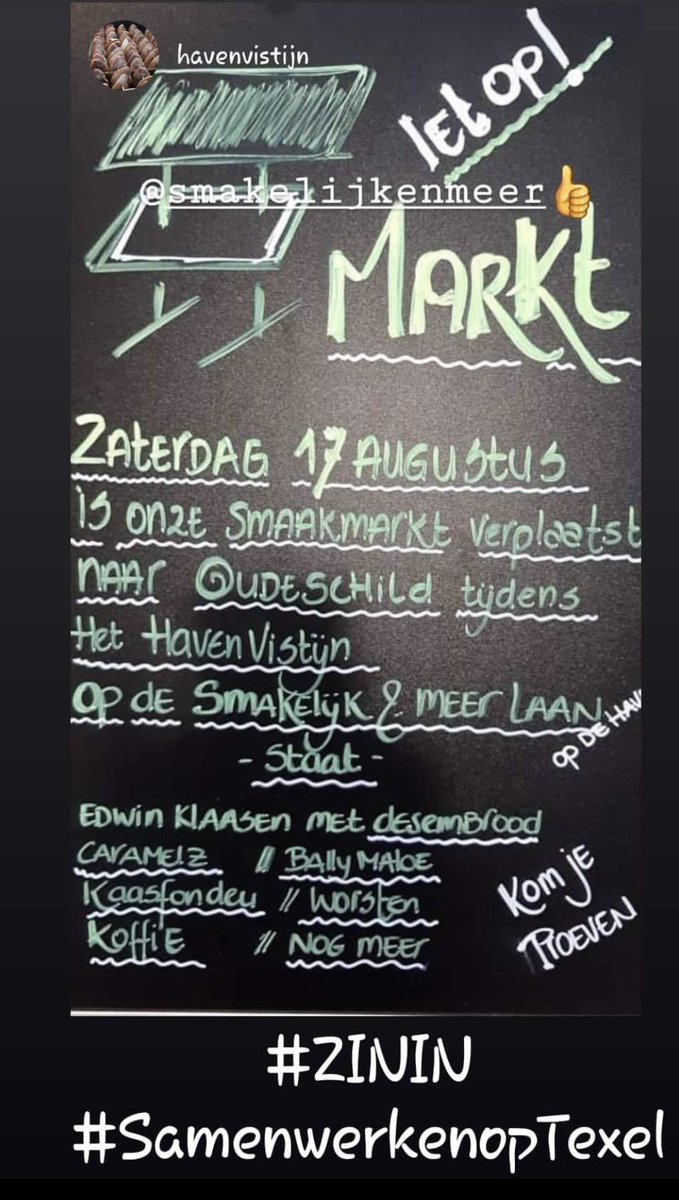 havenvistijn
let op!
@smakelijkenmeer
MARKt
ZAterDAG 17 AUGUStUS
is onze SMAAKMARKt verplaatst
naar OUDESCHild tijdens
Het HAVEN Vistijn
op de SMAKElijk & MEER LAAN
op DE HAV
- Staat -
EDWIN KlAASEN Met desemBrood
CARAMELZ // BAlly MAloe
Kaasfondeu // Worsten
Koffie // NOG MEER
Kom je
PROEVEN
#ZININ
#SamenwerkenopTexel